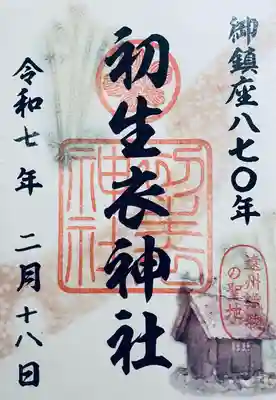 御鎮座八七〇年
初生衣神社
初生衣神社
遠州織物
の聖地
令和七年 二月十八日